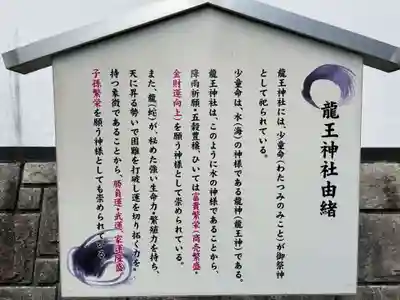 龍王神社由緒
龍王神社には、少童命(わたつみのみこと)が御祭神
として祀られている。
少童命は、水(海)の神様である龍神(龍王神)である。
龍王神社は、このように水の神様であることから、
降雨祈願・五穀豊穣、ひいては富貴繁栄(商売繁盛・
金財運向上)を願う神様として崇められている。
また、龍(蛇)が、秘めた強い生命力・繁殖力を持ち、
天に昇る勢いで困難を打破し運を切り拓く力を
持つ象徴であることから、勝負運・武運、家運隆盛、
子孫繁栄を願う神様としても崇められてる。